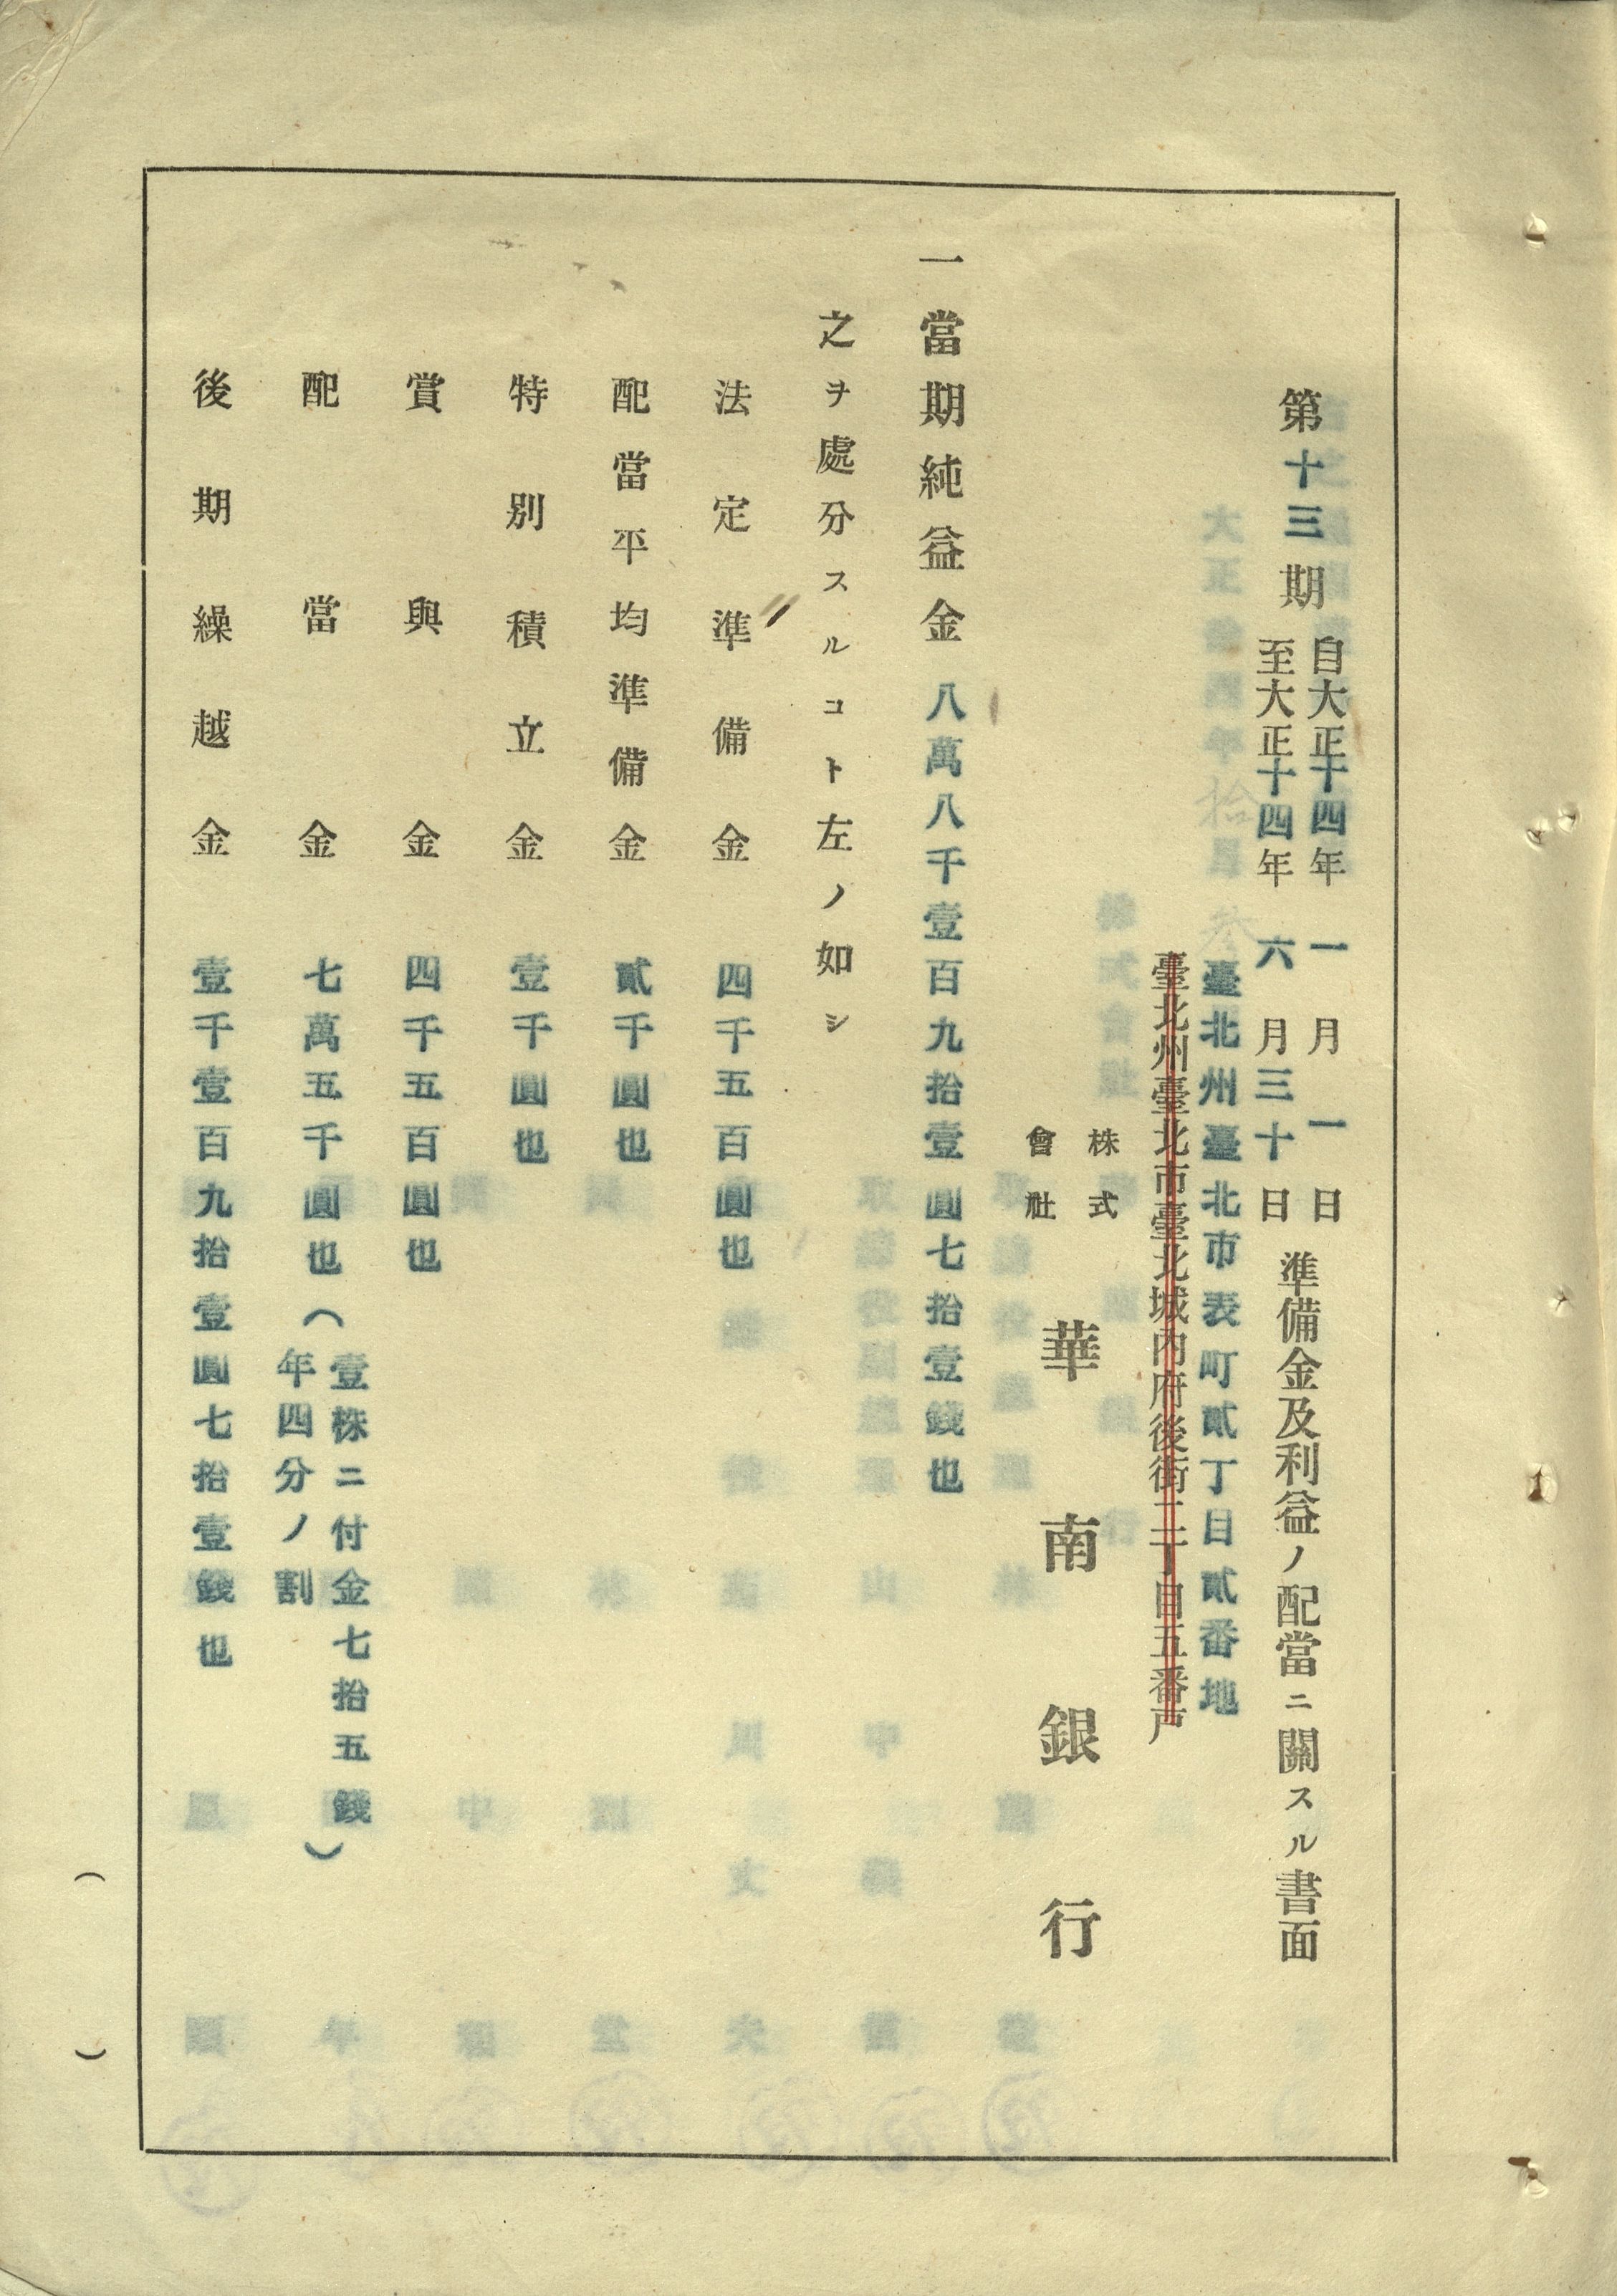 第十三期 自大正十四年 一月 一日 準備金及利益ノ配當ニ關スル書面
至大正十四年 六月三十日
臺北州臺北市表町貳丁目貳番地
臺北州臺北市臺北城內府後街二丁目五番戸
株式
會社
華南銀行
一當期純益金 八萬八千壹百九拾壹圓七拾壹錢也
之ヲ處分スルコト左ノ如シ
法定準備金 四千五百圓也
配當平均準備金 貳千圓也
特別積立金 壹千圓也
賞與金 四千五百圓也
配當金 七萬五千圓也(壹株ニ付金七拾五錢
年四分ノ割)
後期繰越金 壹千壹百九拾壹圓七拾壹錢也
( )